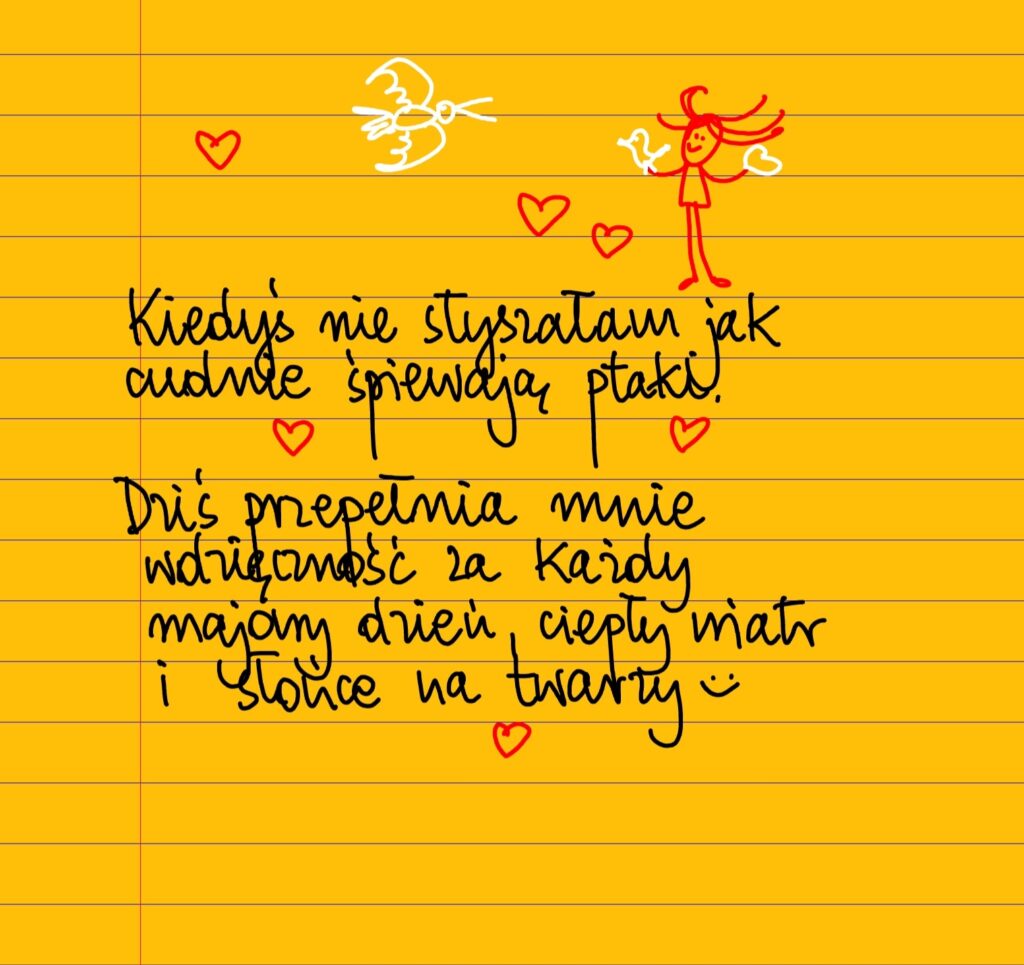 Kiedyś nie słyszałam jak
cudnie śpiewają ptaki.
Dziś przepełnia mnie
wdzięczność za każdy
majowy dzień, ciepły wiatr
i słońce na twarzy :)